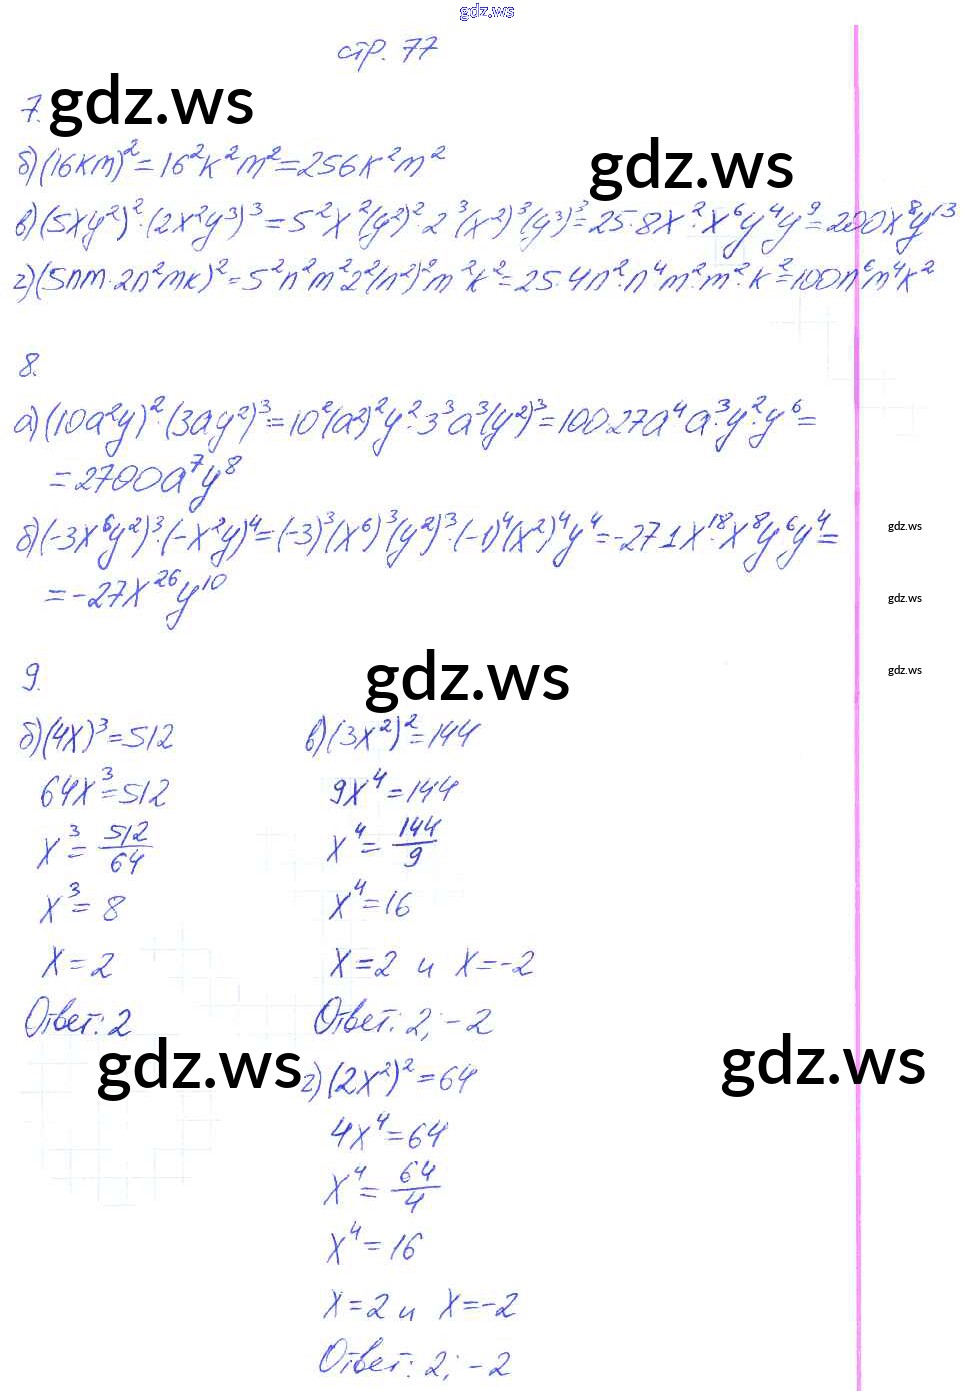 gdz.ws
стр. 77
gdz.ws
7.
gdz.ws
б) (16km)² = 16²k²m² = 256k²m²
в) (5xy²)²·(2x²y³)³ = 5²x²(y²)²·2³(x²)³(y³)³ = 25·8x²·x⁶y⁴y⁹ = 200x⁸y¹³
г) (5nm·2n²mk)² = 5²n²m²2²(n²)²m²k² = 25·4n²·n⁴m²·m²·k² = 100n⁶m⁴k²
8.
а) (10a²y)²·(3ay²)³ = 10²(a²)²y²·3³a³(y²)³ = 100·27a⁴·a³y²·y⁶ =
= 2700a⁷y⁸
б) (-3x⁶y²)³·(-x²y)⁴ = (-3)³(x⁶)³(y²)³·(-1)⁴(x²)⁴y⁴ = -27·1x¹⁸·x⁸y⁶y⁴ =
gdz.ws
= -27x²⁶y¹⁰
gdz.ws
9.
gdz.ws
gdz.ws
б) (4x)³ = 512
64x³ = 512
x³ = 512/64
x³ = 8
x = 2
Ответ: 2
в) (3x²)² = 144
9x⁴ = 144
x⁴ = 144/9
x⁴ = 16
x = 2 и x = -2
Ответ: 2; -2
gdz.ws
gdz.ws
г) (2x²)² = 64
4x⁴ = 64
x⁴ = 64/4
x⁴ = 16
x = 2 и x = -2
Ответ: 2; -2